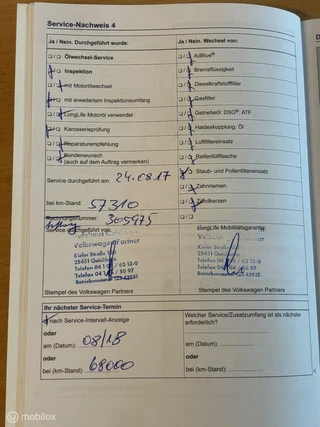 Service-Nachweis 4
Ja / Nein. Durchgeführt wurde:
Ölwechsel-Service
Inspektion
mit Motorölwechsel
mit erweitertem Inspektionsumfang
LongLife Motoröl verwendet
Karosserieprüfung
Reparaturempfehlung
Kundenwunsch
(auch auf dem Auftrag vermerken)
Service durchgeführt am: 24.08.17
bei km-Stand: 57310
Rechnungsnummer: 305975
Service durchgeführt von:
Volkswagen Partner
Kieler Straße
25451 Quickborn
Telefon 04 1 / 63 13-0
Telefax 04 / 50 97
Betriebsnummer 123 43931
Stempel des Volkswagen Partners
Ja / Nein. Wechsel von:
AdBlue®
Bremsflüssigkeit
Dieselkraftstofffilter
Gasfilter
Getriebeöl: DSG®, ATF
Haldexkupplung: Öl
Luftfiltereinsatz
Reifenfüllflasche
Staub- und Pollenfiltereinsatz
Zahnriemen
Zündkerzen
LongLife Mobilitätsgarantie
Kieler Straße
25451 Quickborn
Telefon 04 / 63 13-0
Telefax 04 06 / 50 97
Betriebsnummer 123 43931
Stempel des Volkswagen Partners
Ihr nächster Service-Termin
nach Service-Intervall-Anzeige
oder
am (Datum): 08/18
oder
bei (km-Stand): 68000
Welcher Service/Zusatzumfang ist als nächster
erforderlich?
am (Datum):
oder
bei (km-Stand):
mobilox